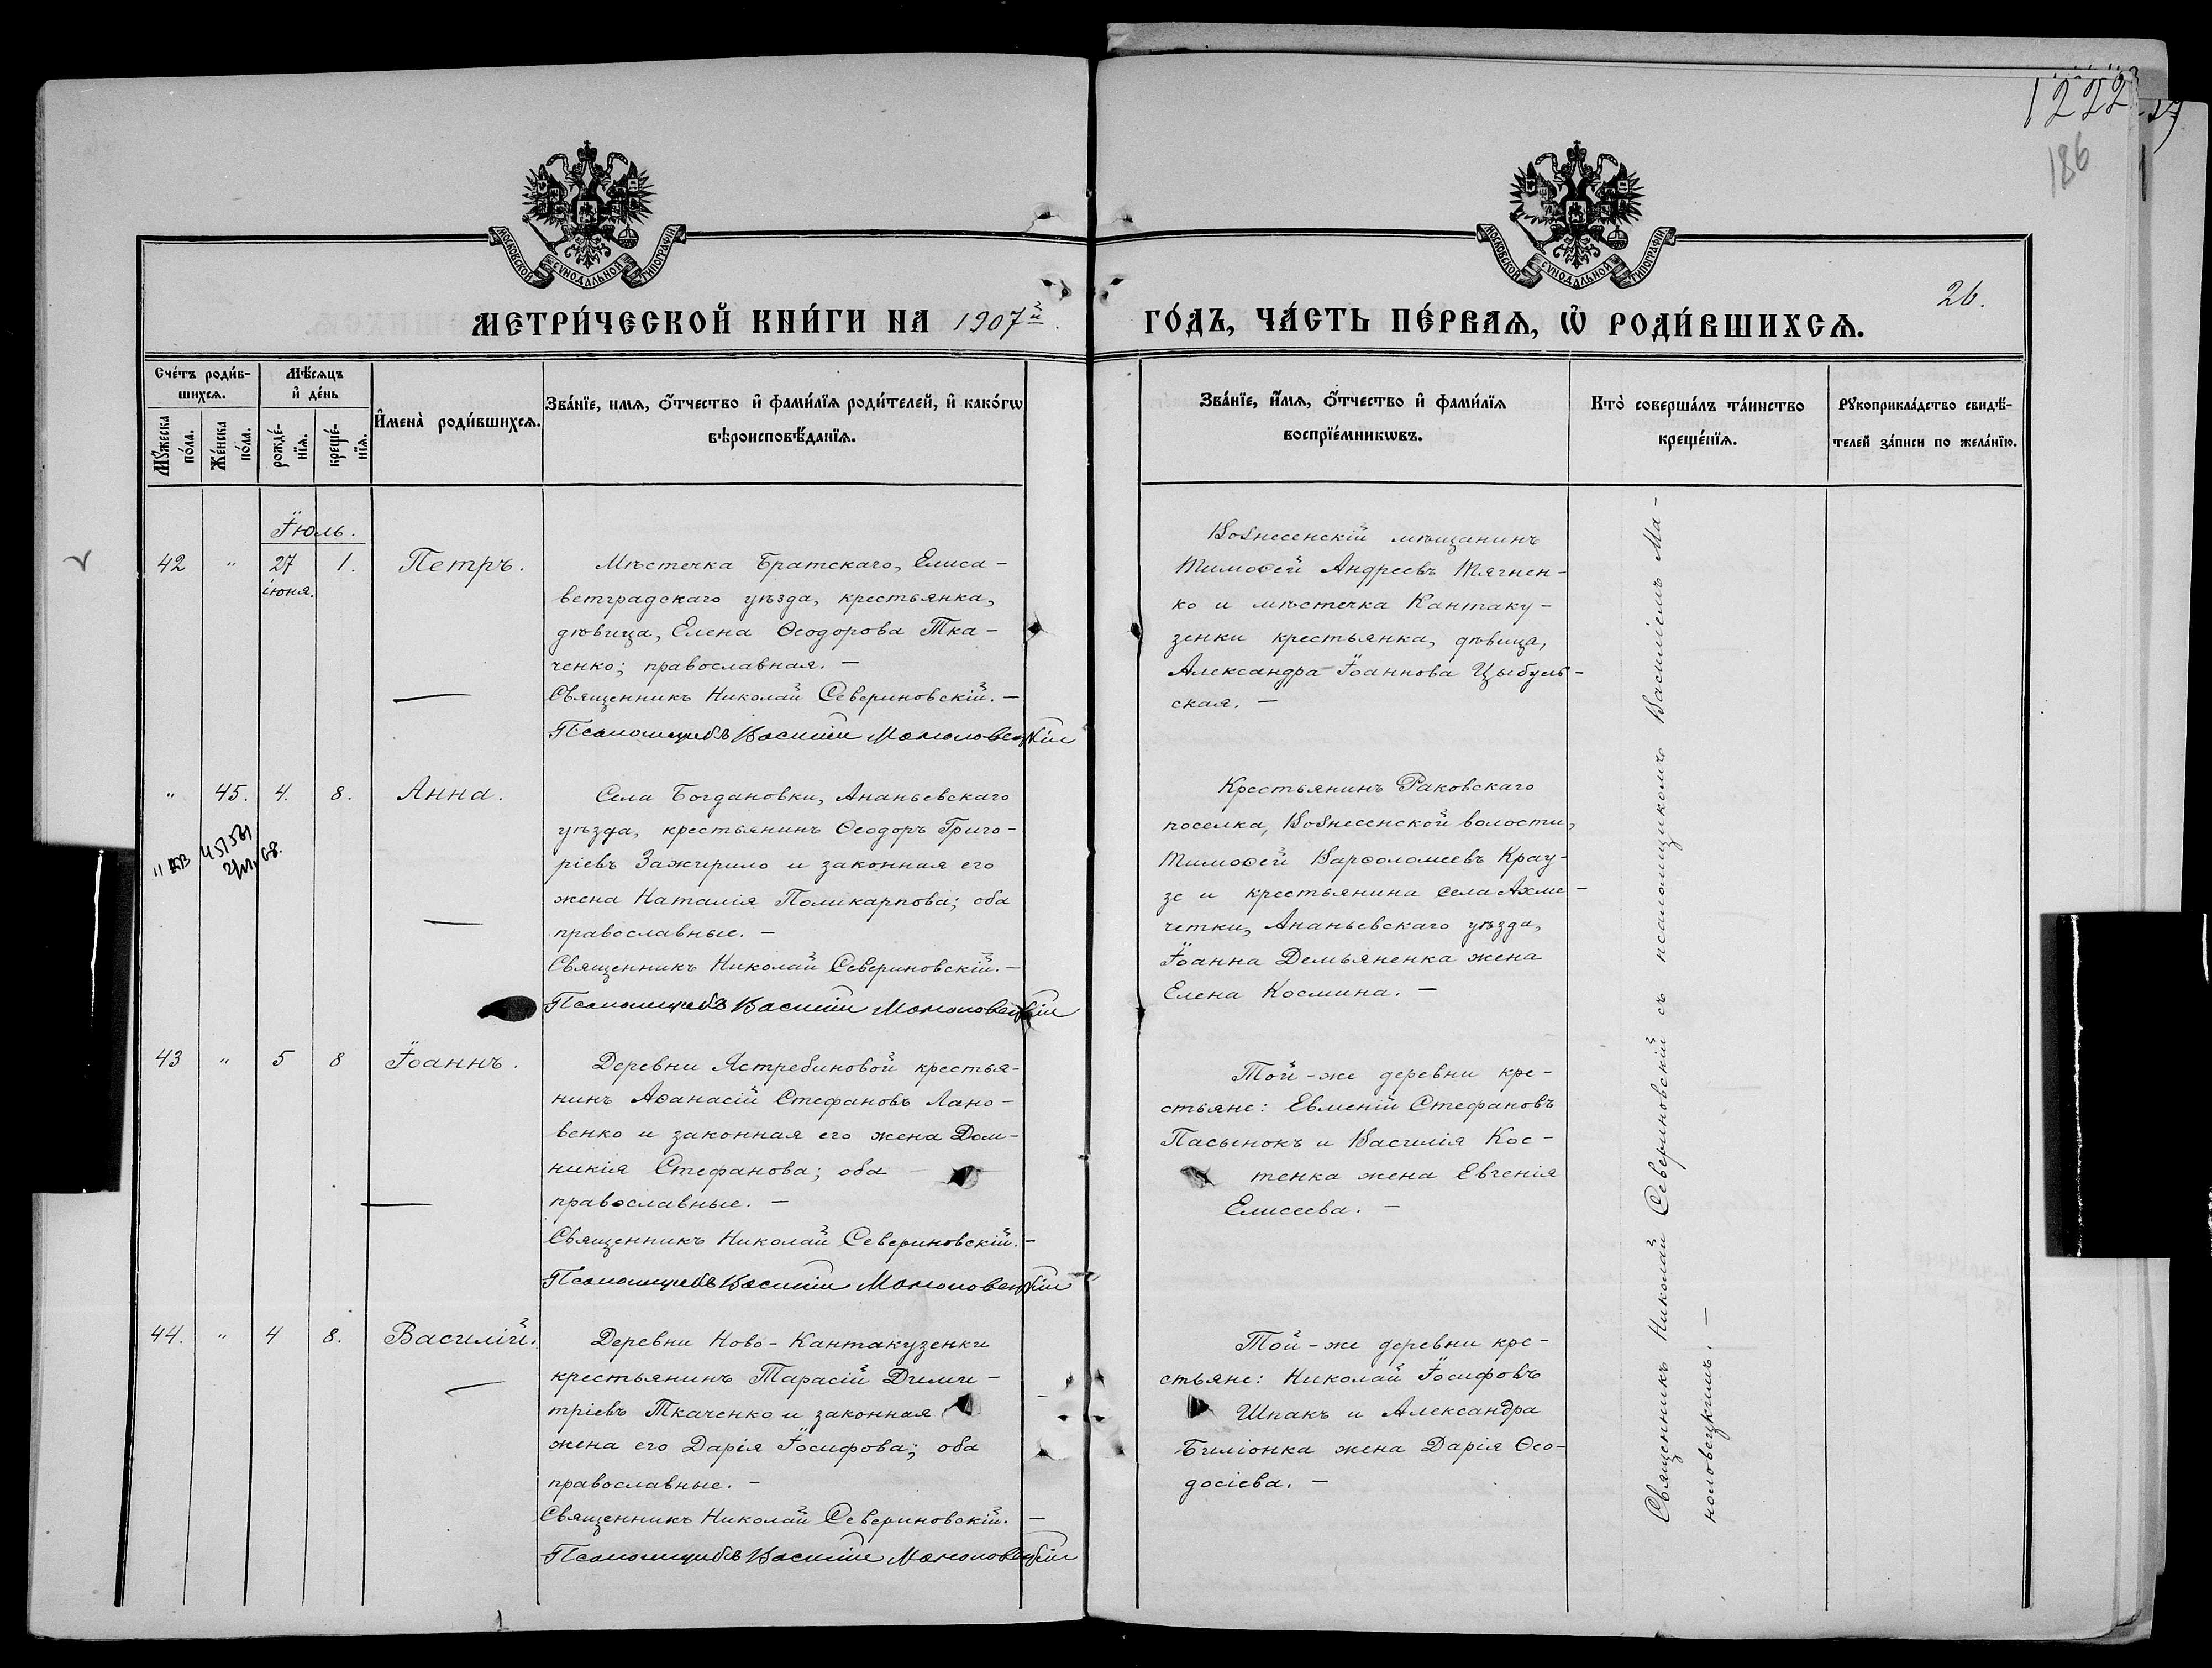 1222
186
МОСКОВСКОЙ СѴНОДАЛЬНОЙ ТИПОГРАФІИ
МОСКОВСКОЙ СѴНОДАЛЬНОЙ ТИПОГРАФІИ
МЕТРИ́ЧЕСКОЙ КНИ́ГИ НА 1907й.
ГО́ДЪ, ЧА́СТЬ ПЕ́РВАѦ, Ѽ РОДИ́ВШИХСѦ.
26.
Сче́тъ роди́в-
шихсѧ.
Мꙋ́жеска
по́ла.
Же́нска
по́ла.
Мѣ́сѧцъ
и҆ де́нь
рожде́-
нїѧ.
креще́-
нїѧ.
И҆мена̀ роди́вшихсѧ.
Зва́нїе, имѧ, ѻ҆́тчество и҆ фами́лїѧ роди́телей, и҆ како́гѡ
вѣроисповѣ́данїѧ.
Зва́нїе, и҆́мѧ, ѻ҆́тчество и҆ фами́лїѧ
воспрїе́мникѡвъ.
Кто̀ соверша́лъ та́инство
креще́нїѧ.
Рꙋкоприкла́дство свидѣ́-
телей за́писи по жела́нїю.
Іюль.
42 " 27 1. Петръ.
іюня.
Мѣстечка Братскаго, Елиса-
ветградскаго уѣзда, крестьянка,
дѣвица, Елена Ѳеодорова Тка-
ченко; православная. —
Священникъ Николай Севериновскій. —
Псаломщикъ Василій Маналовецкій
Вознесенскій мѣщанинъ
Тимоѳей Андреевъ Тягнен-
ко и мѣстечка Кантаку-
зенки крестьянка, дѣвица,
Александра Іоаннова Цыбуль-
ская. —
" 45. 4. 8. Анна.
Села Богдановки, Ананьевскаго
уѣзда, крестьянинъ Ѳеодоръ Григо-
ріевъ Зажирило и законная его
жена Наталія Поликарпова; оба
православные. —
Священникъ Николай Севериновскій. —
Псаломщикъ Василій Маналовецкій
Крестьянинъ Раковскаго
поселка, Вознесенской волости,
Тимоѳей Варѳоломеевъ Крау-
зе и крестьянина села Ахме-
четки, Ананьевскаго уѣзда,
Іоанна Демьяненка жена
Елена Космина. —
43 " 5 8 Іоаннъ.
Деревни Ястребиновой крестья-
нинъ Аѳанасій Стефановъ Лано-
венко и законная его жена Дом-
никія Стефанова; оба
православные. —
Священникъ Николай Севериновскій. —
Псаломщикъ Василій Маналовецкій
Той-же деревни кре-
стьяне: Евменій Стефановъ
Пасынокъ и Василія Кос-
тенка жена Евгенія
Елисеева. —
44. " 4 8. Василій.
Деревни Ново-Кантакузенки
крестьянинъ Тарасій Дими-
тріевъ Ткаченко и законная
жена его Дарія Іосифова; оба
православные. —
Священникъ Николай Севериновскій. —
Псаломщикъ Василій Маналовецкій
Той-же деревни кре-
стьяне: Николай Іосифовъ
Шпакъ и Александра
Биліонка жена Дарія Ѳео-
досіева. —
Священникъ Николай Севериновскій съ псаломщикомъ Василіемъ Ма-
наловецкимъ. —